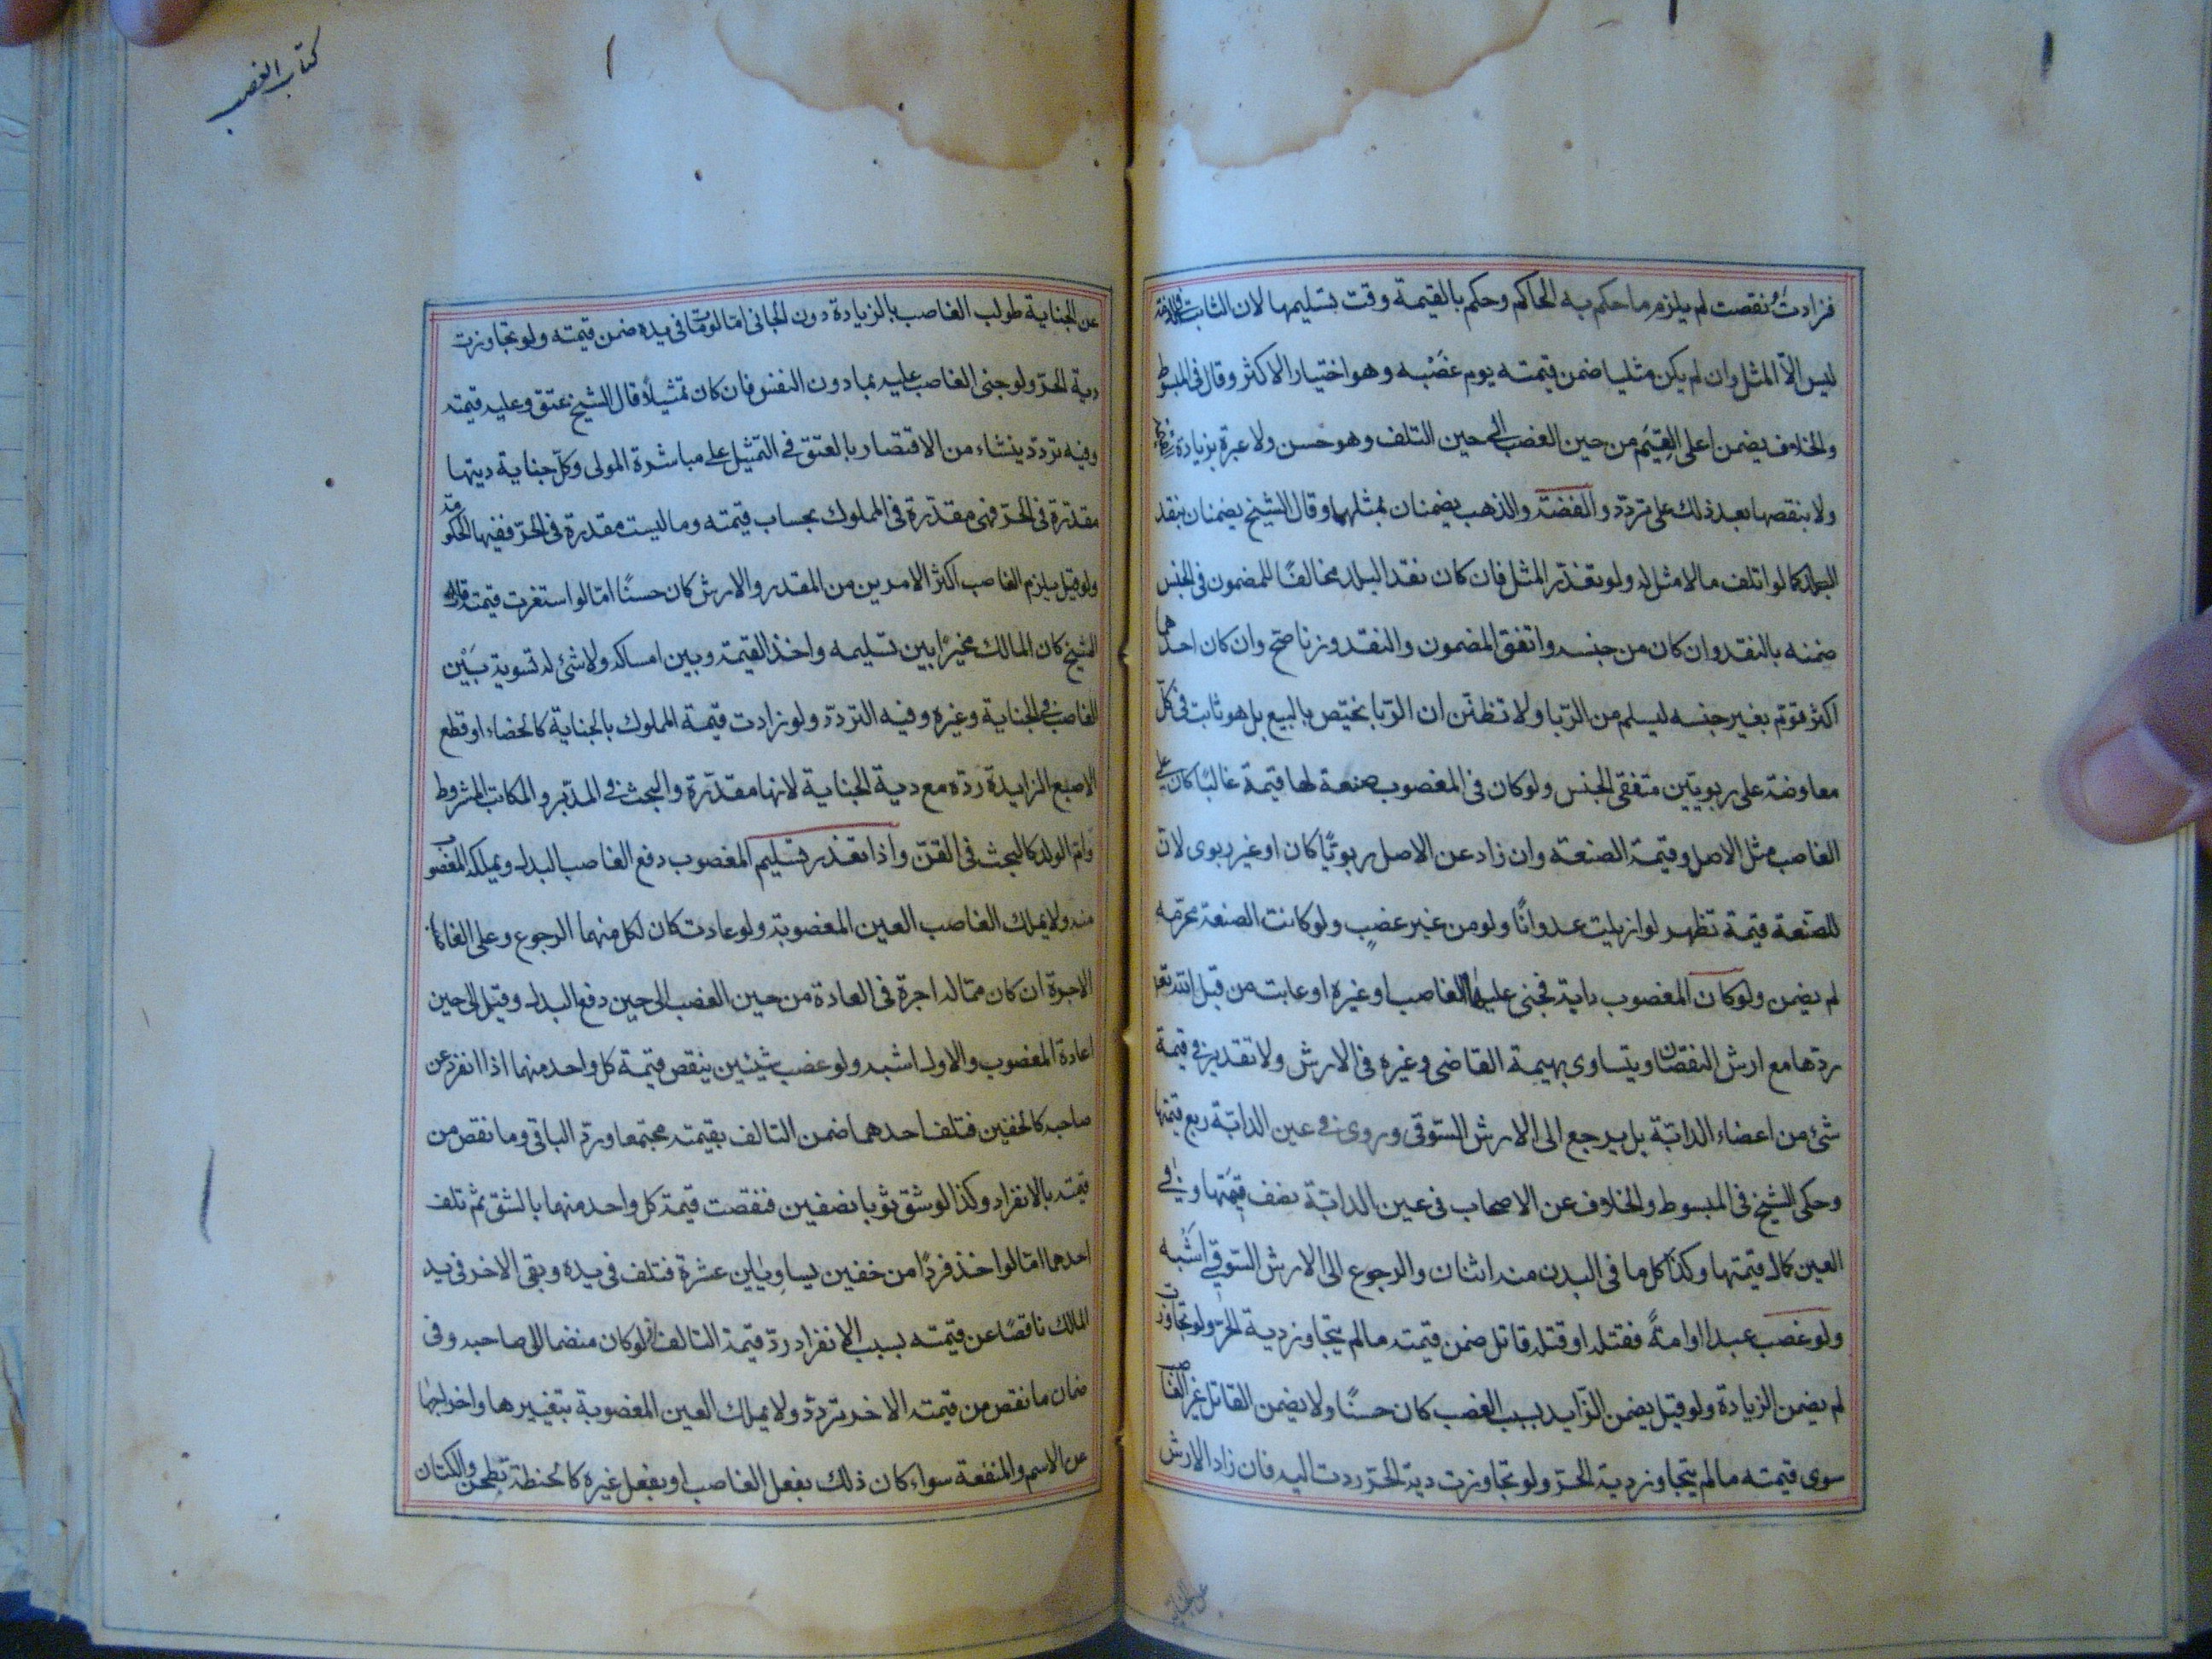 فزادت او نقصت لم يلزم ما حكم به الحاكم وحكم بالقيمة وقت تسليمها لان الثابت فى الذمة
ليس الّا المثل وان لم يكن مثليا ضمن قيمته يوم غَصْبه وهو اختيار الاكثر وقال فى المبسوط
والخلاف يضمن اعلى القِيَم من حين الغصب الى حين التلف وهو حسن ولا عبرة بزيادة
ولا بنقصها بعد ذلك على تردّد والفضّة والذهب يضمنان بمثلهما وقال الشيخ يضمنان بنقد
البلد كما لو اتلف مالا مثل له ولو تعذّر المثل فان كان نقد البلد مخالفًا للمضمون فى الجنس
ضمنه بالنقد وان كان من جنسه واتفق المضمون والنقد وزنا صح وان كان احدهما
اكثر قوّم بغير جنسه ليسلم من الرّبا ولا تظنّن ان الرّبا يختصّ بالبيع بل هو ثابت فى كلّ
معاوضة على ربويّين متفقى الجنس ولو كان فى المغصوب صنعة لها قيمة غالبًا كان على
الغاصب مثل الاصل وقيمة الصنعة وان زاد عن الاصل ربويًّا كان او غير ربوى لانّ
للصّنعة قيمة تظهر لو ازيلت عدوانًا ولو من غير غصبٍ ولو كانت الصنعة محرّمه
لم يضمن ولو كان المغصوب دابة فجنى عليها الغاصب او غيره او عابت من قبل الله تعم
ردّها مع ارش النقصان ويتساوى بهيمة القاضى وغيره فى الارش ولا تقدير فى قيمة
شئ من اعضاء الدابّة بل يرجع الى الارش السّوقى وروى فى عين الدابّة ربع قيمتها
وحكى الشيخ فى المبسوط والخلاف عن الاصحاب فى عين الدابّة نصف قيمتها وفى
العين كمال قيمتها وكذا كل ما فى البدن منه اثنان والرجوع الى الارش السّوقى اشبه
ولو غصب عبدا او امةً فقتله او قتله قاتل ضمن قيمته مالم يتجاوز دية الحرّ ولو تجاوزت
لم يضمن الزيادة ولو قيل يضمن الزّايد بسبب الغصب كان حسنًا ولا يضمن القاتل غير الغاصب
سوى قيمته مالم يتجاوز دية الحرّ ولو تجاوزت دية الحرّ ردت اليه فان زاد الارش
عن الجناية
كتاب الغصب
عن الجناية طولب الغاصب بالزيادة دون الجانى امّا لو مات فى يده ضمن قيمته ولو تجاوزت
دية الحرّ ولو جنى الغاصب عليه بما دون النفس فان كان تمثيلًا قال الشيخ عتق وعليه قيمته
وفيه تردّد ينشاء من الاقتصار بالعتق فى التمثيل على مباشرة المولى وكلّ جناية ديتها
مقدّرة فى الحرّ فهى مقدّرة فى المملوك بحساب قيمته وما ليست مقدرة فى الحرّ ففيها الحكومة
ولو قيل يلزم الغاصب اكثر الامرين من المقدر والارش كان حسنًا امّا لو استغرقت قيمته قال
الشيخ كان المالك مخيرًا بين تسليمه واخذ القيمة وبين امساكه ولا شئ له تسوية بَيْن
الغاصب فى الجناية وغيره وفيه التردّد ولو زادت قيمة المملوك بالجناية كالخصاء او قطع
الاصبع الزايدة ردّه مع دية الجناية لانها مقدّرة والبحث فى المدّبر والمكاتب المشروط
وام الولد كالبحث فى القنّ واذا تعذر تسليم المغصوب دفع الغاصب البدل ويملكه المغصوب
منه ولا يملك الغاصب العين المغصوبة ولو عادت كان لكل منهما الرجوع وعلى الغاصب
الاجرة ان كان مما له اجرة فى العادة من حين الغصب الى حين دفع البدل وقيل الى حين
اعادة المغصوب والاول اشبه ولو غصب شيئين ينقص قيمة كل واحد منهما اذا انفرد عن
صاحبه كالخفين فتلف احدهما ضمن التالف بقيمته مجتمعا وردّ الباقى وما نقص من
قيمته بالانفراد وكذا لو شق ثوبا نصفين فنقصت قيمة كل واحد منهما بالشق ثم تلف
احدهما امّا لو اخذ فردًا من خفين يساويان عشرة فتلف فى يده وبقى الاخر فى يد
المالك ناقصًا عن قيمته بسبب الانفراد ردّ قيمة التالف لو كان منضما الى صاحبه وفى
ضمان ما نقص من قيمته الاخر تردّدٌ ولا يملك العين المغصوبة بتغييرها واخراجها
عن الاسم والمنفعة سواء كان ذلك بفعل الغاصب او بفعل غيره كالحنطة تطحن والكتان